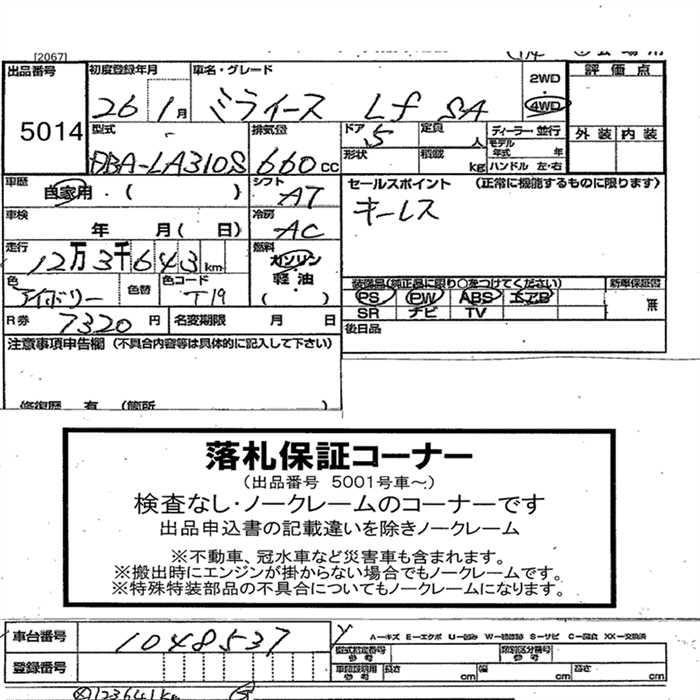 [2067]
出品番号 初度登録年月 車名・グレード 2WD 評価点
5014 26 1月 ミライース Lf SA 4WD
型式 排気量 ドア 定員 ディーラー・並行 外装 内装
DBA-LA310S 660cc 5 人 モデル年式 年
形状 積載 kg ハンドル 左・右
車歴 自家用・( ) シフト AT セールスポイント (正常に機能するものに限ります)
車検 年 月( 日) 冷房 AC キーレス
走行 12万3千643km 燃料 ガソリン 軽・油 ( )
色 アイボリー 色替 色コード T19 装備品(純正品に限り○をつけてください) 新車保証書
PS PW ABS エアB 無
R券 7320円 名変期限 月 日 SR ナビ TV
後日品
注意事項申告欄 (不具合内容等は具体的に記入して下さい)
修復歴 有 (箇所 )
落札保証コーナー
(出品番号 5001号車~)
検査なし・ノークレームのコーナーです
出品申込書の記載違いを除きノークレーム
※不動車、冠水車など災害車も含まれます。
※搬出時にエンジンが掛からない場合でもノークレームです。
※特殊特装部品の不具合についてもノークレームになります。
車台番号 1048537 A-キズ E-エクボ U-凹み W-補修跡 S-サビ C-腐食 XX-交換済
型式指定番号 参考 類別区分番号 参考
登録番号 車検証説明用 参考 長さ cm 幅 cm 高さ cm
123641km